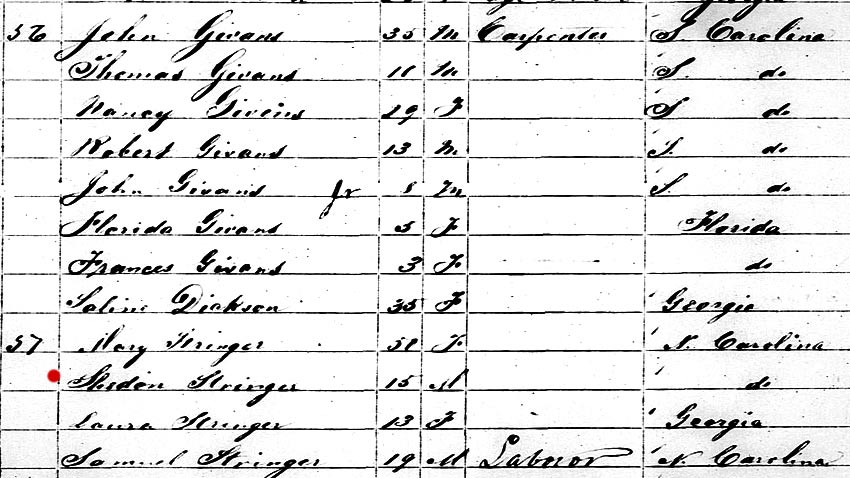 56 John Givans 35 M Carpenter S. Carolina
Thomas Givans 11 M S. do
Nancy Givens 29 F S do
Robert Givans 13 M S. do
John Givans Jr 8 M S. do
Florida Givans 5 F Florida
Frances Givans 3 F do
Saline Dickson 35 F Georgia
57 Mary Stringer 51 F N. Carolina
Stringer 15 M do
Laura Stringer 13 F Georgia
Samuel Stringer 19 M Laboror N. Carolina